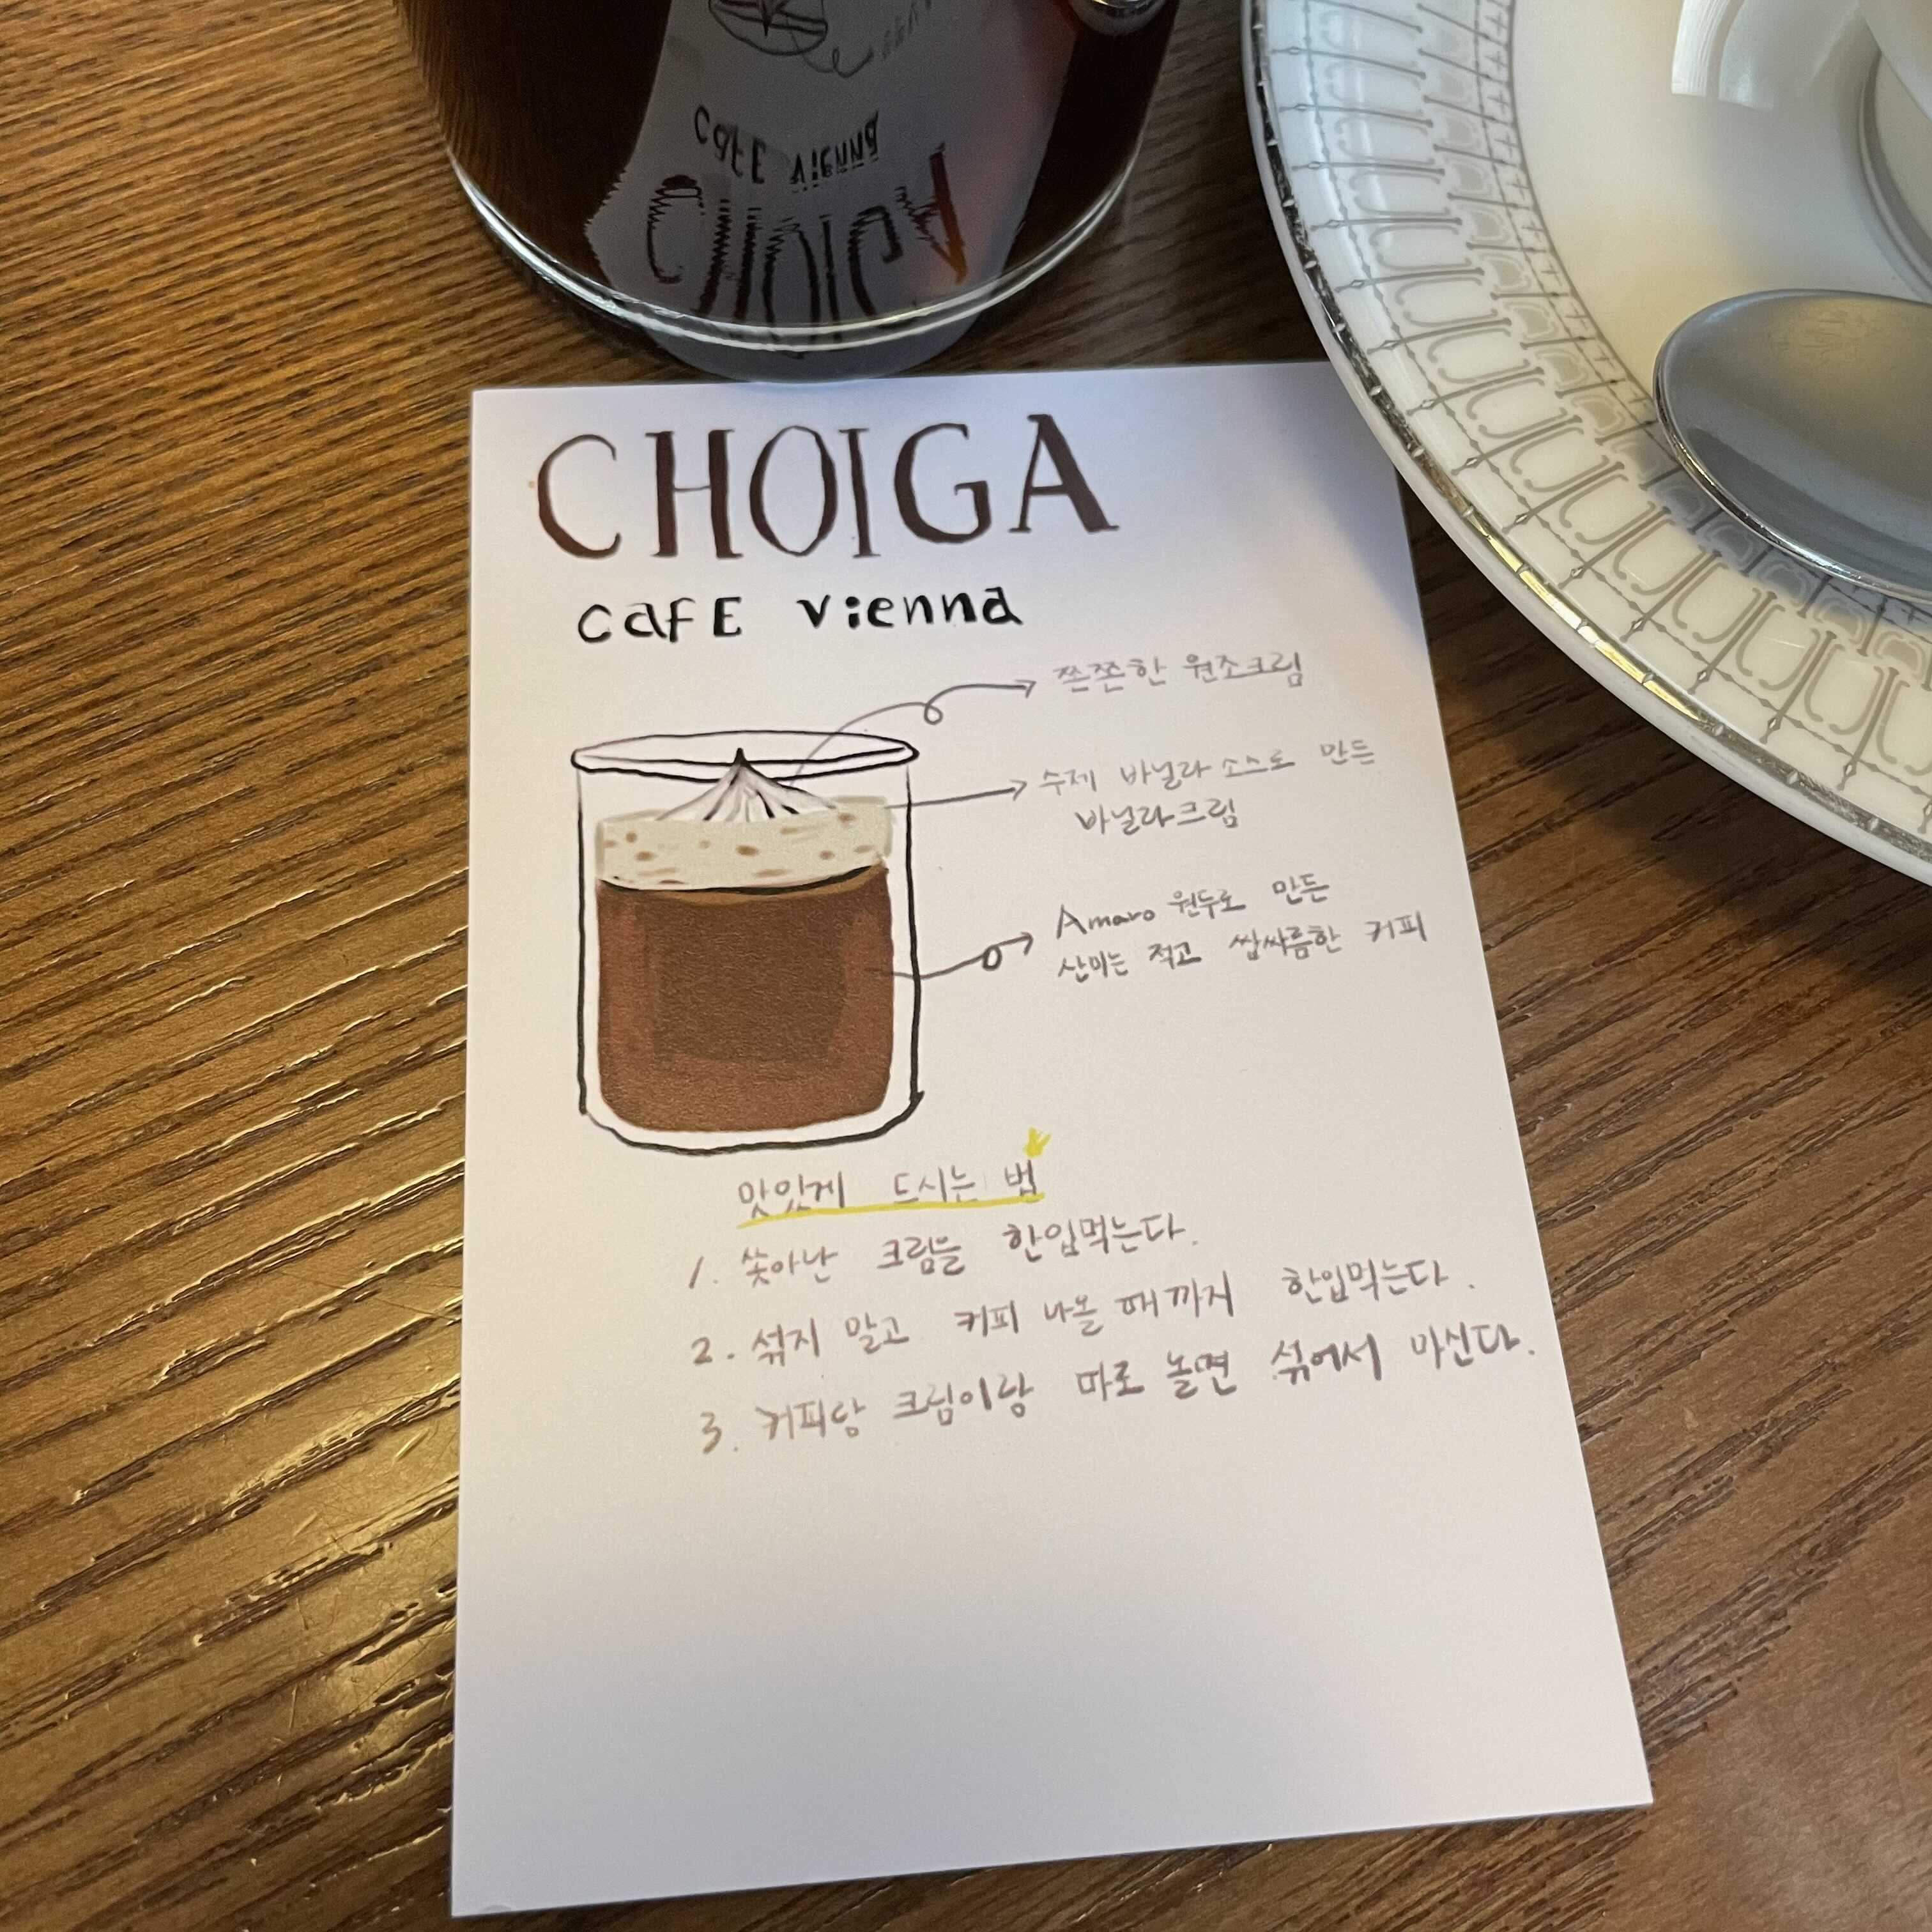 CAFE Vienna
CHOIGA
CHOIGA
CAFE Vienna
쫀쫀한 원조크림
수제 바닐라 소스로 만든
바닐라크림
Amaro 원두로 만든
산미는 적고 쌉싸름한 커피
맛있게 드시는 법
1. 솟아난 크림을 한입먹는다.
2. 섞지 말고 커피 나올 때까지 한입먹는다.
3. 커피랑 크림이랑 따로 놀면 섞어서 마신다.